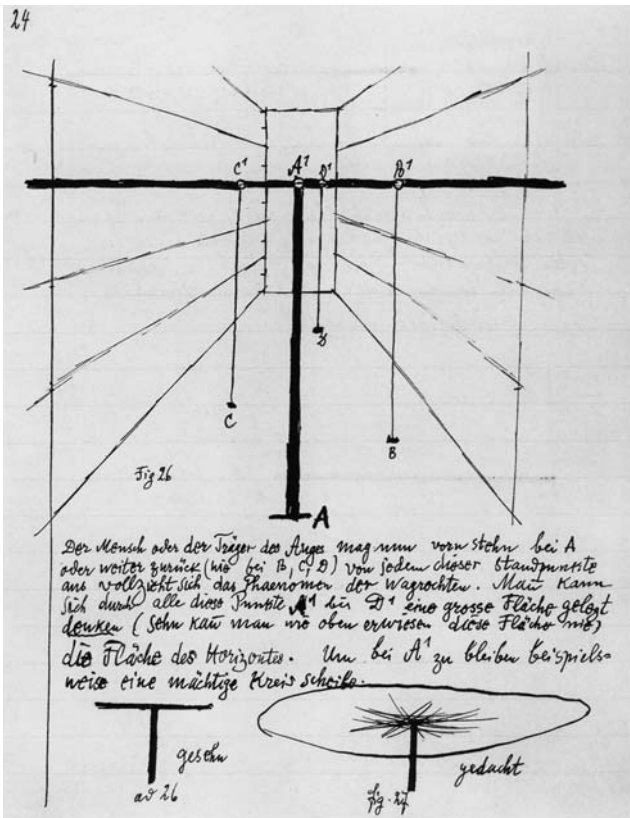 24
C¹ A¹ D¹ B¹
D
C
B
Fig 26
A
Der Mensch oder der Träger des Auges mag nun vorn stehn bei A
oder weiter zurück (wie bei B, C, D) von jedem dieser Standpunkte
aus vollzieht sich das Phaenomen der Wagrechten. Man kann
sich durch alle diese Punkte A¹ bis D¹ eine grosse Fläche gelegt
denken (Sehn kañ man wie oben erwiesen diese Fläche nie)
die Fläche des Horizontes. Um bei A¹ zu bleiben beispiels=
weise eine mächtige Kreis scheibe.
gesehn
gedacht
ad 26
fig. 27